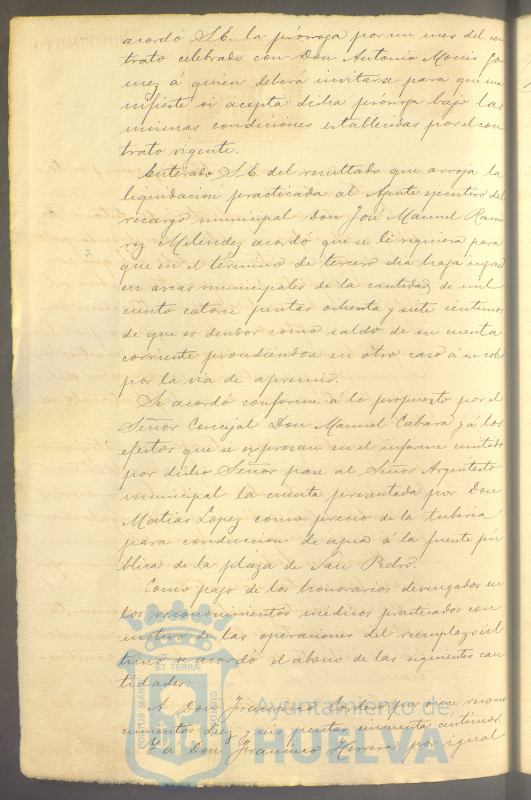 acordó S.E. la prórroga por un mes del con
trato celebrado con Don Antonio Monis Go
mez á quien deberá invitarse para que ma
nifieste si acepta dicha prórroga bajo las
mismas condiciones establecidas por el con
trato vigente.
Enterado S.E. del resultado que arroja la
liquidacion practicada al Agente ejecutivo del
recargo municipal Don José Manuel Rami
rez Melendez acordó que se le requiera para
que en el término de tercero dia haga ingreso
en arcas municipales de la cantidad de mil
ciento catorce pesetas ochenta y siete céntimos
de que es deudor como saldo de su cuenta
corriente procediendose en otro caso á su cobro
por la via de apremio.
Se acordó conforme á lo propuesto por el
Señor Concejal Don Manuel Cabara y á los
efectos que se expresan en el informe emitido
por dicho Señor pase al Señor Arquitecto
municipal la cuenta presentada por Don
Matias Lopez como precio de la tuberia
para conduccion de agua á la fuente pú
blica de la plaza de San Pedro.
Como pago de los honorarios devengados en
los reconocimientos médicos practicados con
motivo de las operaciones del reemplazo úl
timo se acordó el abono de las siguientes can
tidades:
A Don Francisco por once recono
cimientos diez y seis pesetas cincuenta céntimos.
Ya á don Francisco Herrera por igual
PORTUS MARIS ET TERRÆ CUSTODIA
Ayuntamiento de
HUELVA